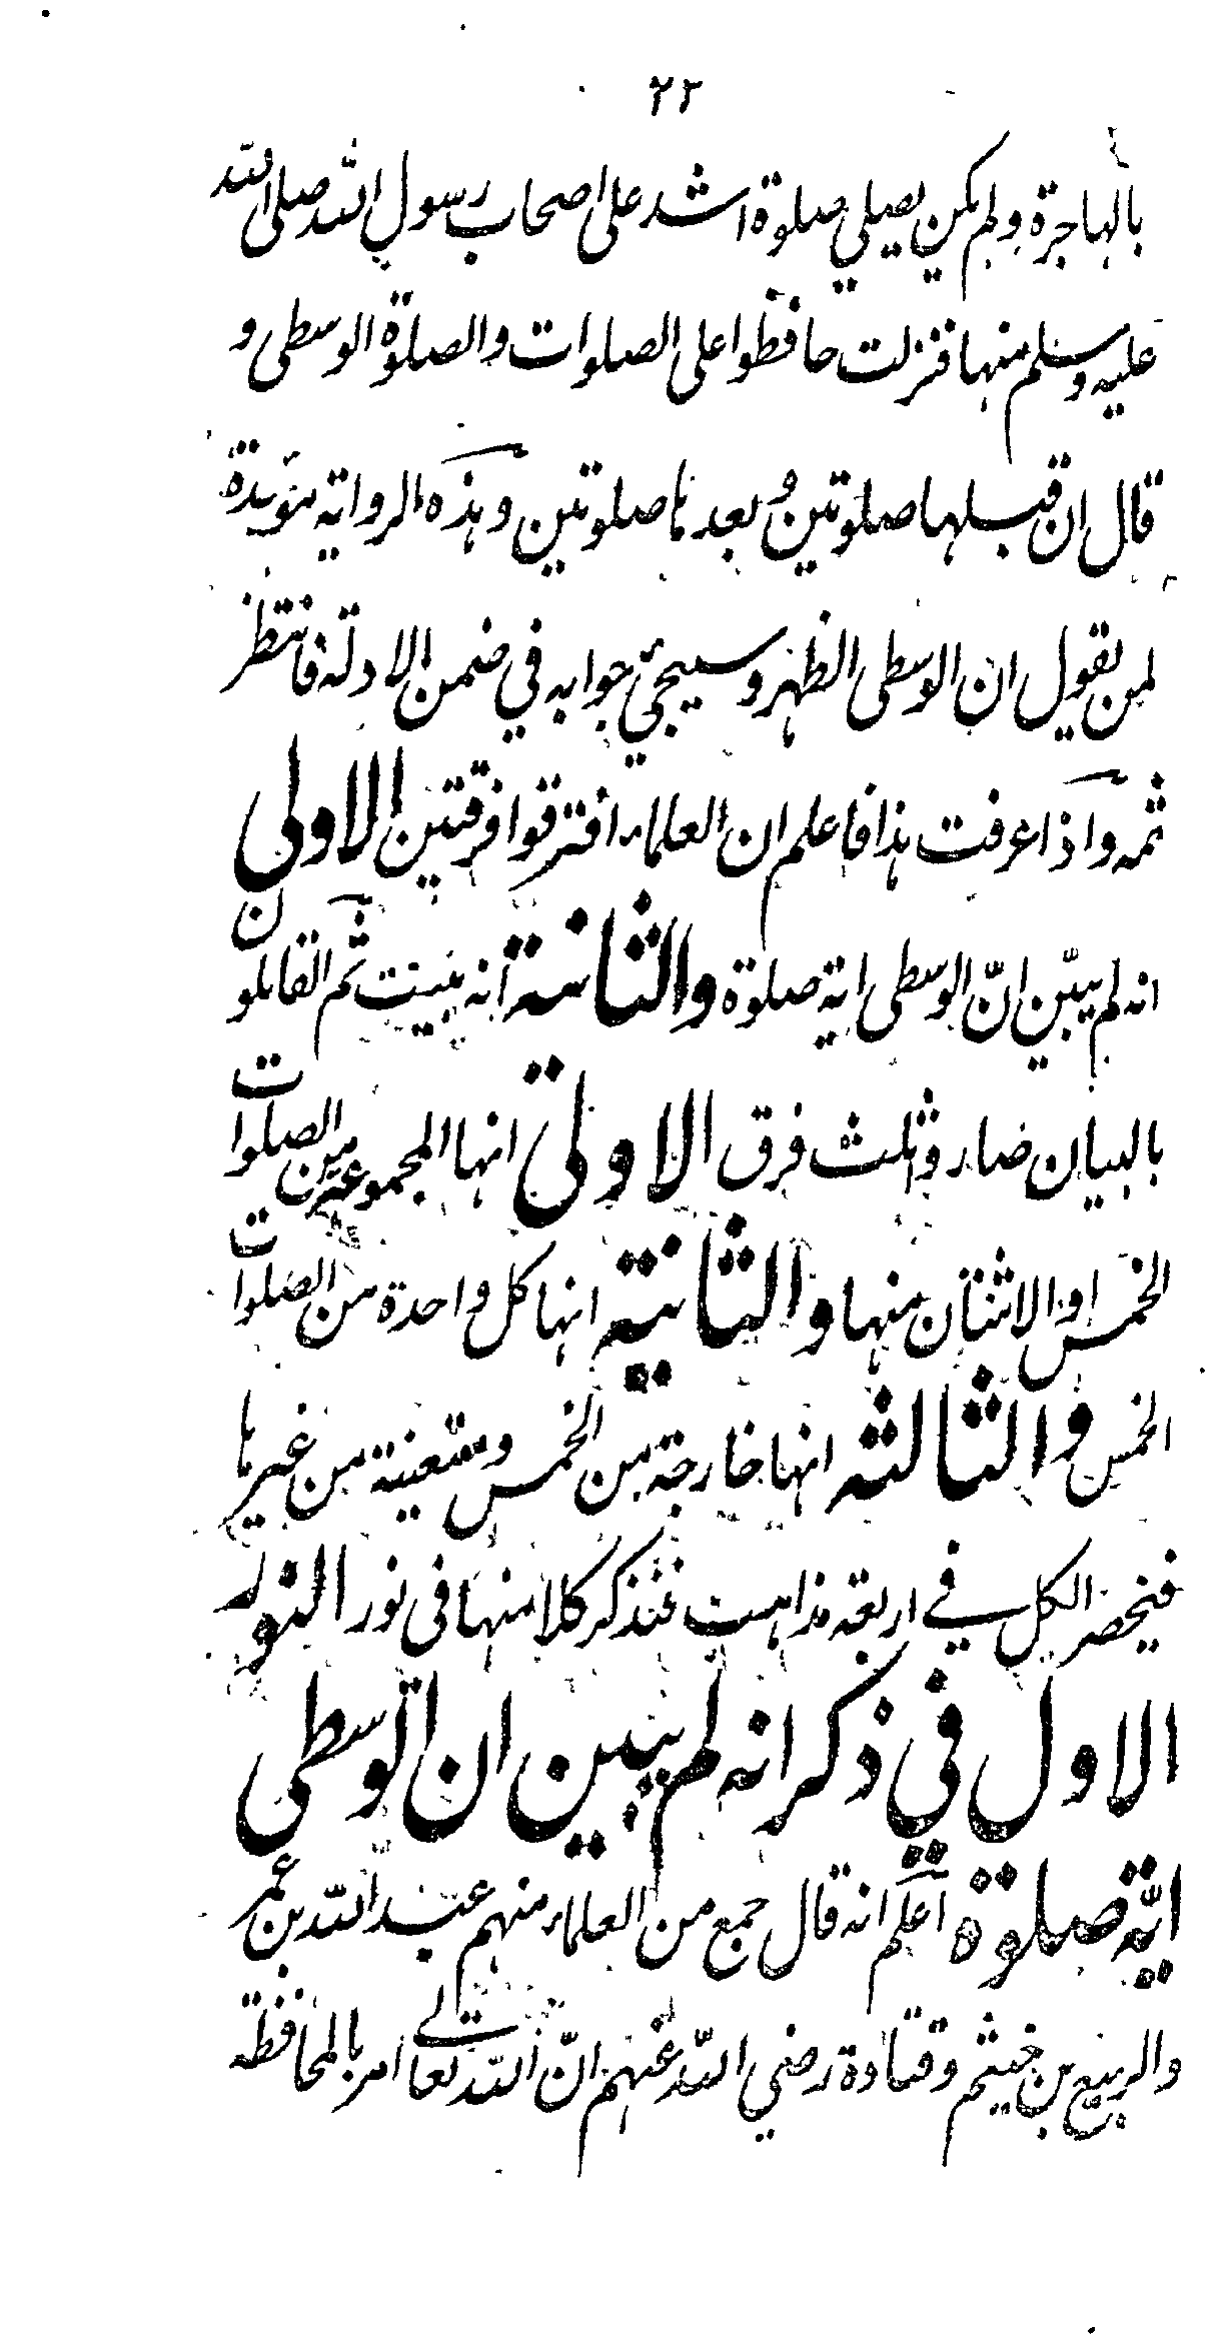 ٢٣
بالهاجرة ولم يكن يصلي صلوة اشد على اصحاب رسول الله صلى الله
عليه وسلم منها فنزلت حافظوا على الصلوات والصلوة الوسطى و
قال ان قبلها صلوتين و بعدها صلوتين وهذه الرواية مؤيدة
لمن يقول ان الوسطى الظهر وسيجيئ جوابه في ضمن الادلة فانتظر
ثمه واذا عرفت هذا فاعلم ان العلماء افترقوا فرقتين الاولى
انه لم يبيّن انّ الوسطى اية صلوة والثانية انه بينت ثم القائلون
بالبيان صاروا ثلث فرق الاولى انها المجموعة من الصلوات
الخمس او الاثنتان منها والثانية انها كل واحدة من الصلوات
الخمس والثالثه انها خارجة من الخمس ومتعينة من غيرها
فينحصر الكل في اربعة مذاهب فنذكر كلا منها في نور النور
الاول في ذكر انه لم يبين ان الوسطى
ايّة صلوة اعلم انه قال جمع من العلماء منهم عبد الله بن عمر
والربيع بن خيثم وقتادة رضي الله عنهم انّ الله تعالى امر بالمحافظة